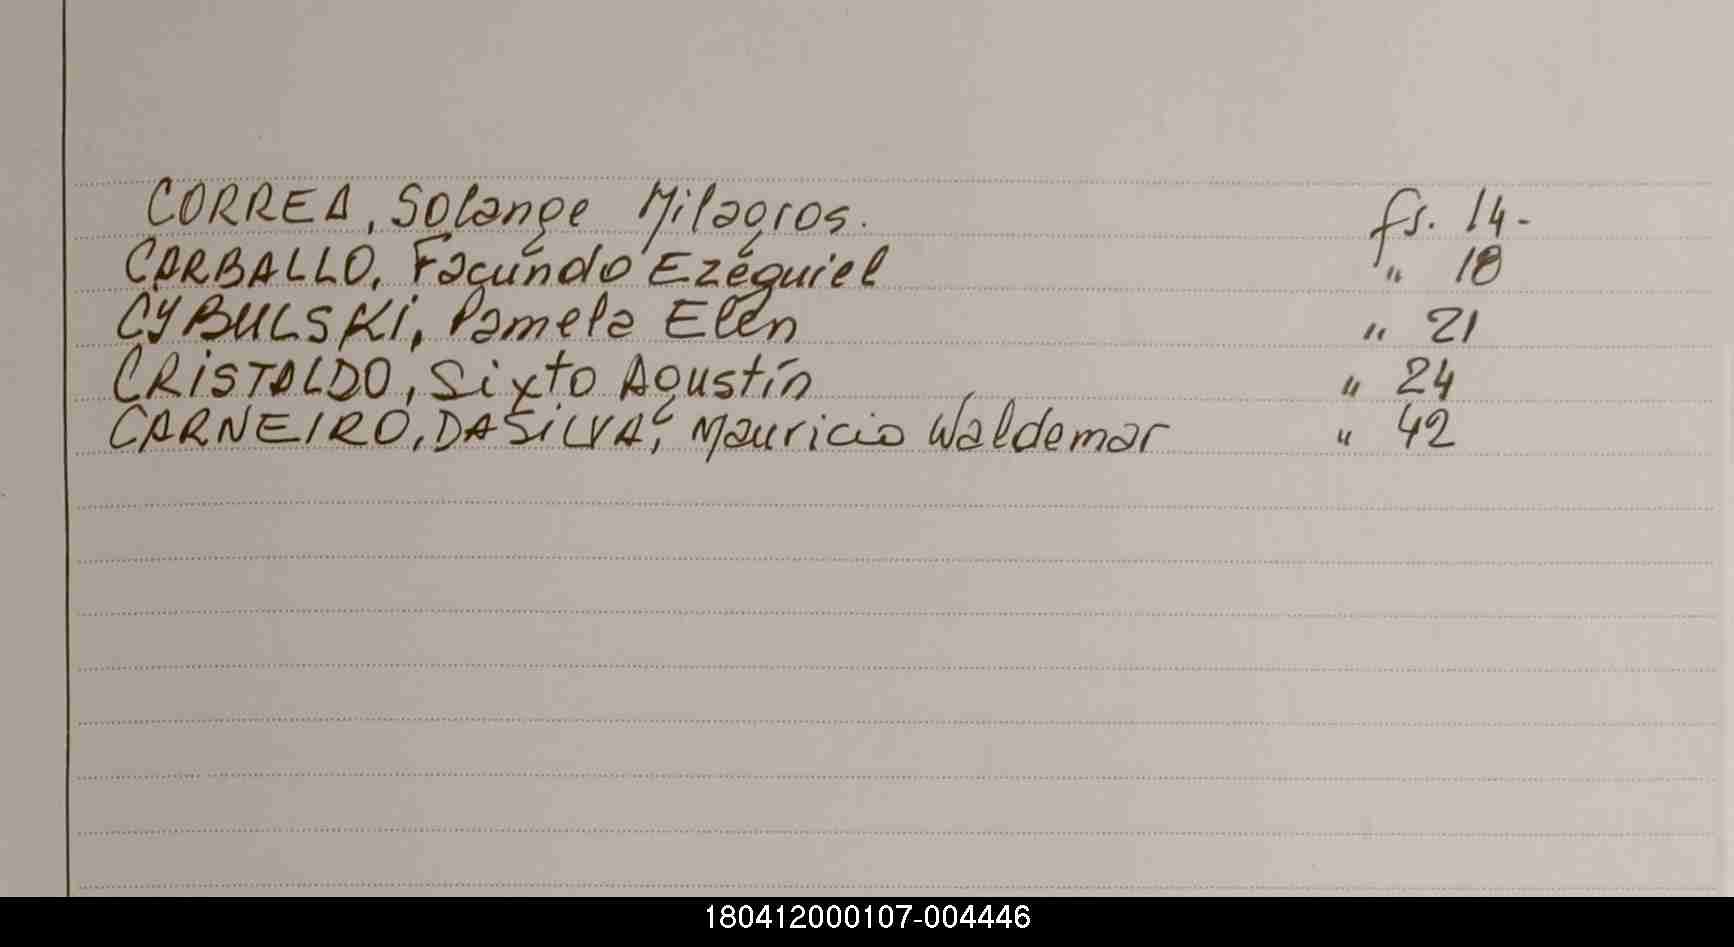 CORREA, Solange Milagros. fs. 14-
CARBALLO, Facundo Ezequiel " 18
CYBULSKI, Pamela Elen " 21
CRISTALDO, Sixto Agustín " 24
CARNEIRO, DA SILVA, Mauricio Waldemar " 42
180412000107-004446